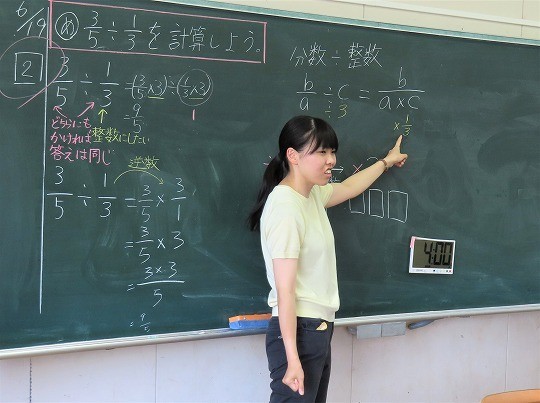 6/19
め 3/5÷1/3を計算しよう。
2
3/5÷1/3=(3/5×3)÷(1/3×3)
=9/5 1
どちらにも
かければ
答えは同じ
整数にしたい
逆数
3/5÷1/3=3/5×3/1
=3/5×3
=3×3/5
=9/5
分数÷整数
b/a÷c=b/a×c
÷3
×1/3
4:00